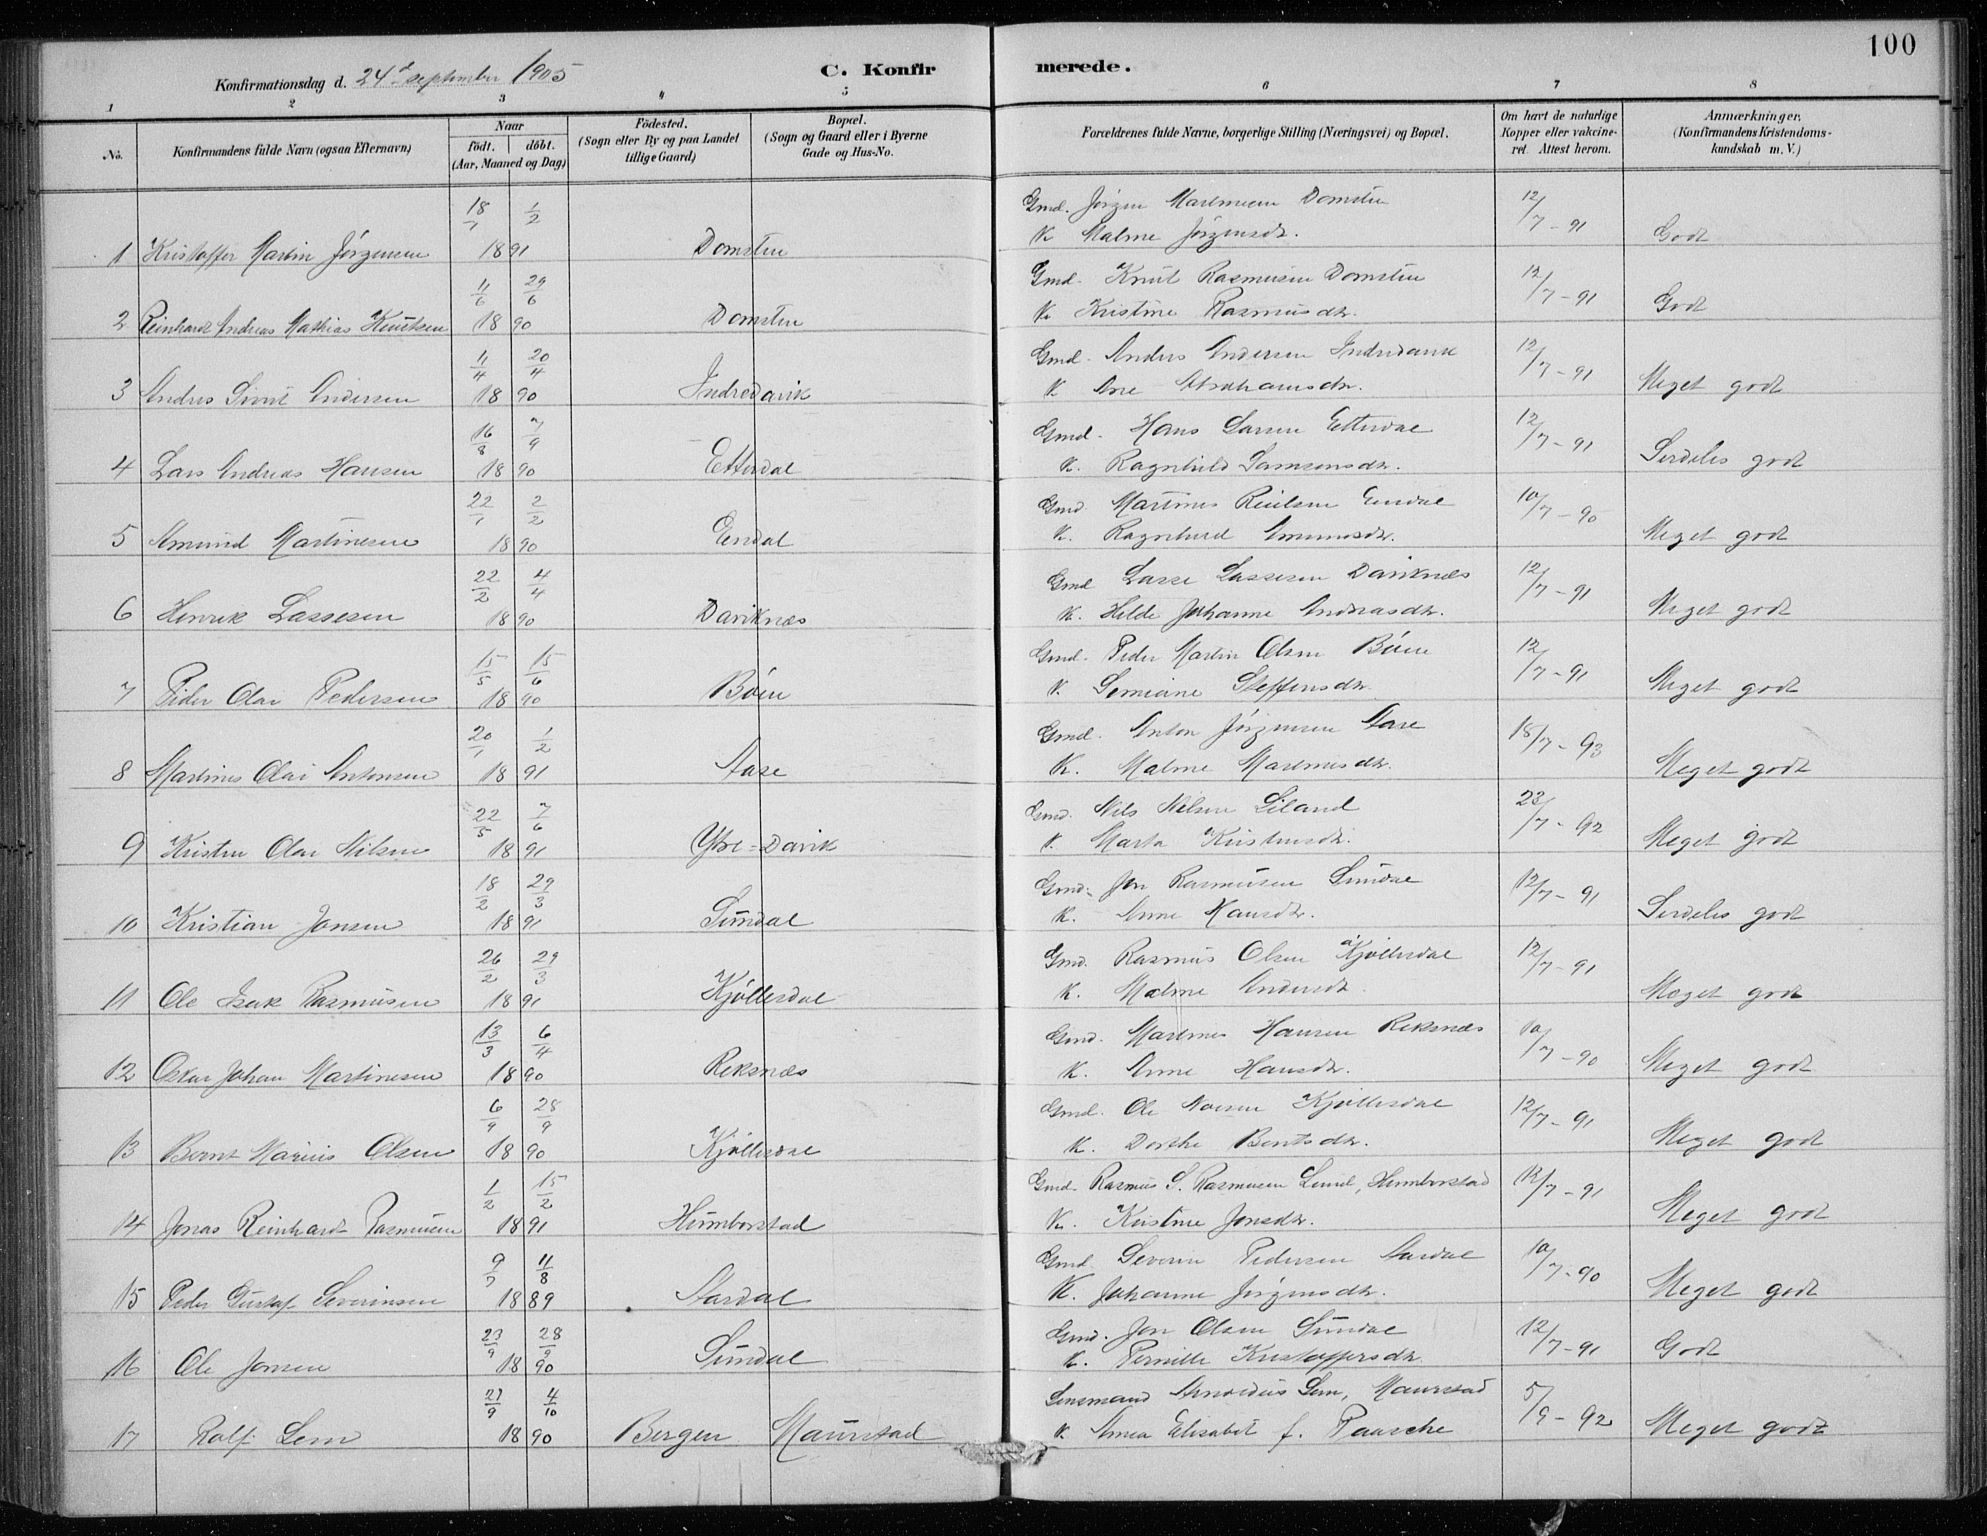 100
Konfirmationsdag d. 24d september 1905
C. Konfirmerede.
1 2 3 4 5 6 7 8
No.
Konfirmandens fulde Navn (ogsaa Efternavn)
Naar
født. døbt.
(Aar, Maaned og Dag)
Fødested.
(Sogn eller By og paa Landet
tillige Gaard)
Bopæl.
(Sogn og Gaard eller i Byerne
Gade og Hus-No.
Forældrenes fulde Navne, borgerlige Stilling (Næringsvei) og Bopæl.
Om havt de naturlige
Kopper eller vakcine-
ret. Attest herom.
Anmærkninger.
(Konfirmandens Kristendoms-
kundskab m. V.)
18/7 1/2 Gmd. Jørgen Martinsen Domsten 12/7-91
1 Kristoffer Martin Jørgensen 1891 Domsten K. Malene Jørgensdtr. Godt
11/6 29/6 Gmd. Knut Rasmusen Domsten 12/7-91
2 Reinhardt Andreas Mathias Knutsen 1890 Domsten K. Kristine Rasmusdtr. Godt
11/4 20/4 Gmd. Anders Andersen Indredavik 12/7-91
3 Andres Sivert Andersen 1890 Indredavik K. Ane Abrahamsdtr. Meget godt
16/8 7/9 Gmd. Hans Larsen Etterdal 12/7-91
4 Lars Andreas Hansen 1890 Etterdal K. Ragnhild Samsonsdtr. Serdeles godt
22/1 2/2 Gmd. Martines Endal 10/7-90
5 Amund Martinesen 1890 Endal K. Ragnhild Amundsdtr. Meget godt
22/2 4/4 Gmd Lasse Lassesen Daviknæs 12/7-91
6 Henrik Lassesen 1890 Daviknæs K. Helde Johanne Andreasdtr. Meget godt
15/5 15/6 Gmd. Peder Martin Olsen Böen 12/7-91
7 Peder Olai Pedersen 1890 Böen K. Semine Steffensdtr. Meget godt
20/1 1/2 Gmd. Anton Jørgensen Aase 18/7-93
8 Martines Olai Antonsen 1891 Aase K. Malene Martinusdtr. Meget godt
22/5 7/6 Gmd. Nils Nilsen Liland 23/7-92
9 Kristen Olai Nilsen 1891 Ytre-Davik K. Marta Kristensdtr. Meget godt
18/2 29/3 Gmd. Jon Rasmusen Sundal 12/7-91
10 Kristian Jonsen 1891 Sundal K. Anne Hansdtr. Serdeles godt
26/2 29/3 Gmd. Rasmus Olsen Kjöllesdal 12/7-91
11 Ole Isak Rasmusen 1891 Kjöllesdal K. Malene Andersdtr. Meget godt
13/3 6/4 Gmd. Martines Hansen Reksnæs 10/7-90
12 Oskar Johan Martinesen 1890 Reksnæs K. Anne Hansdtr. Meget godt
6/9 28/9 Gmd. Ole Kjöllesdal 12/7-91
13 Bernt Marius Olsen 1890 Kjöllesdal K. Dorthe Bentsdtr. Meget godt
1/2 15/2 Gmd. Rasmus S. Rasmusen Lund, Humborstad 12/7-91
14 Jonas Reinhardt Rasmusen 1891 Humborstad K. Kristine Jonsdtr. Meget godt
9/7 11/8 Gmd. Severin Pedersen Aardal 10/7-90
15 Peder Gustaf Severinsen 1889 Aardal K. Johanne Jørgensdtr. Meget godt
23/9 28/9 Gmd. Jon Olsen Sundal 12/7-91
16 Ole Jonsen 1890 Sundal K. Pernille Kristoffersdtr. Godt
27/9 4/10 Lensmand Arnoldus Lem, Maurstad 5/9-92
17 Rolf Lem 1890 Bergen Maurstad K. Anna Elisabet f. Paasche Meget godt